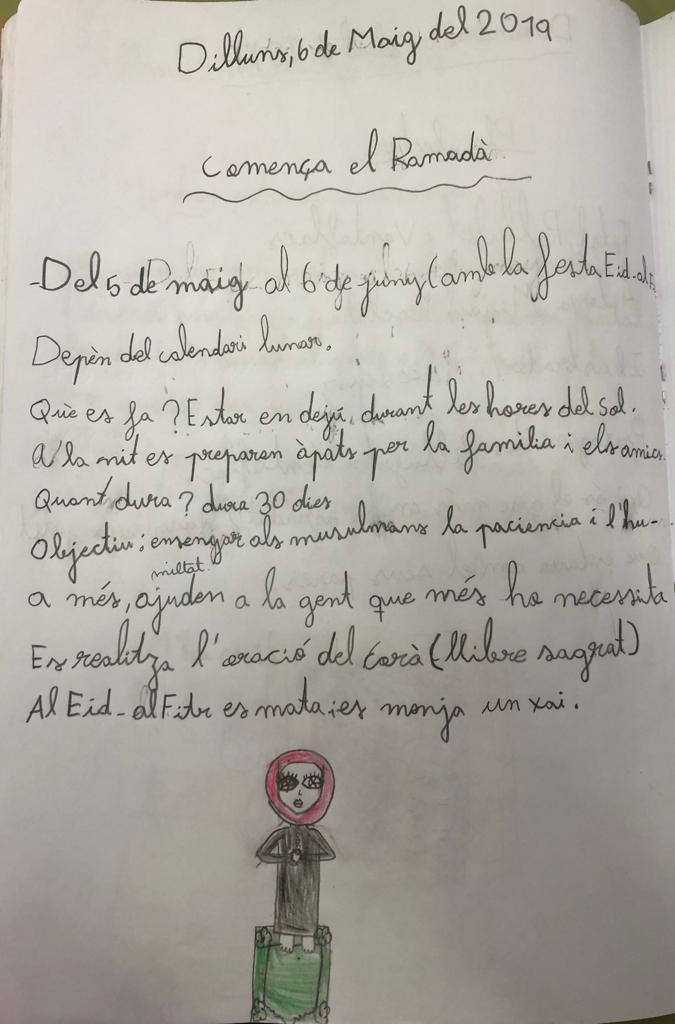 Dilluns, 6 de Maig del 2019
Comença el Ramadà
-Del 5 de maig al 6 de juny (amb la festa Eid-al
Depèn del calendari lunar.
Què es fa? Estar en dejú, durant les hores del sol.
A la nit es preparen àpats per la família i els amics.
Quant dura? dura 30 dies
Objectiu: ensenyar als musulmans la paciencia i l'hu-
miltat.
a més, ajuden a la gent que més ho necessita
Es realitza l'oració del Corà (llibre sagrat)
Al Eid-al Fitr es mata i es menja un xai.